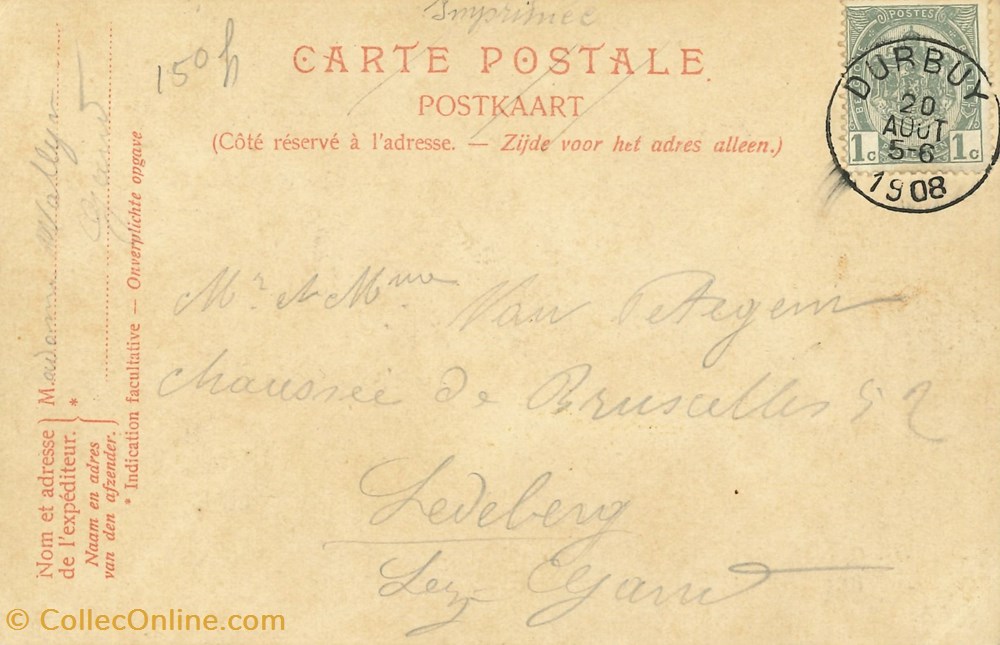 Imprimée
150 h
CARTE POSTALE.
POSTKAART
(Côté réservé à l'adresse. — Zijde voor het adres alleen.)
POSTES
1c 1c
DURBUY
20
AOUT
5-6
1908
Mr et Mme Van Petegem
chaussée de Bruxelles 52
Ledeberg
Lez Gand
Nom et adresse de l'expéditeur.
Naam en adres van den afzender.
* Madame
* Indication facultative — Onverplichte opgave
© CollecOnline.com